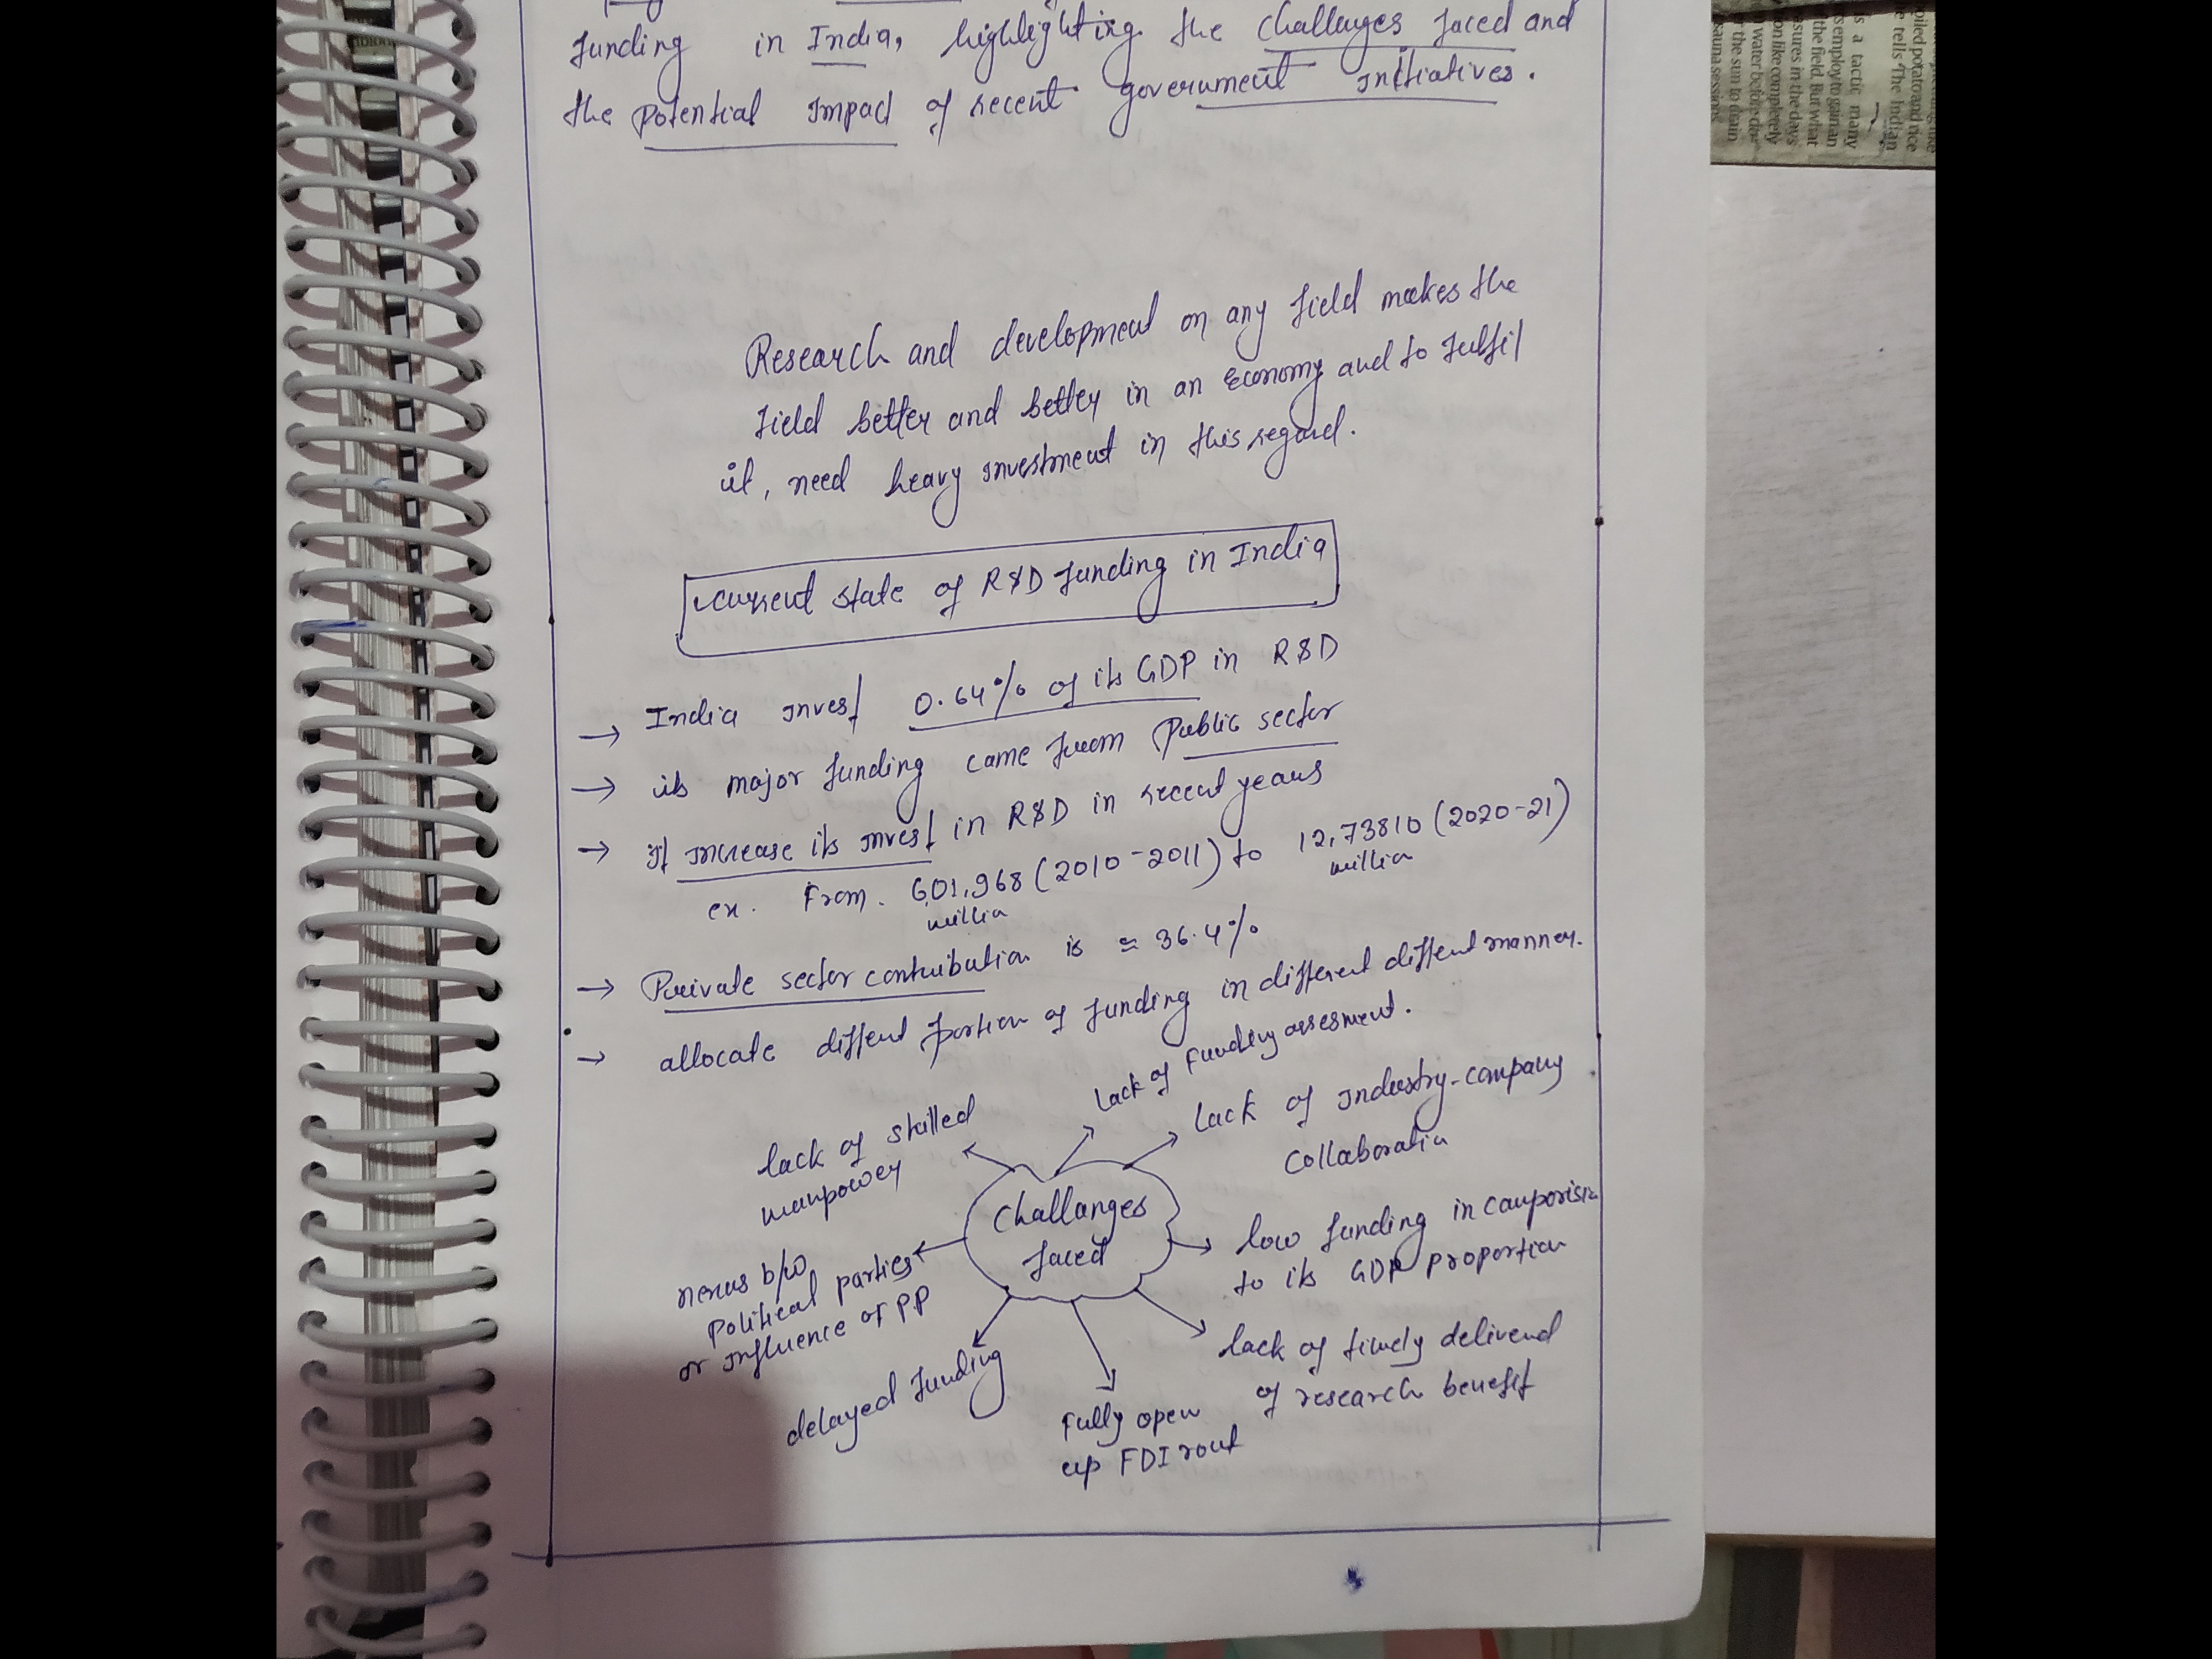 funding in India, highlighting the challenges faced and
the potential impact of recent government initiatives.
Research and development on any field makes the
field better and better in an economy and to fulfil
it, need heavy investment in this regard.
current state of R&D funding in India
→ India invest 0.64% of its GDP in R&D
→ its major funding came from public sector
→ It increase its invest in R&D in recent years
ex. From. 601,968 (2010-2011) to 12,73810 (2020-21)
million million
→ Private sector contribution is ≃ 36.4%
→ allocate diffent portion of funding in different diffent manner.
lack of funding assesment.
lack of skilled
manpower
lack of industry-company
collaboration
Challanges
faced
low funding in comparision
to its GDP proportion
nexus b/w
political parties
or influence of P.P
lack of timely deliverd
of research benefit
delayed funding
Fully open
up FDI rout
oiled potato and rice
e tells The Indian
s a tactic many
s employ to gain an
the field. But what
sures in the days
on like completely
water before
the sun to drain
sauna sessions